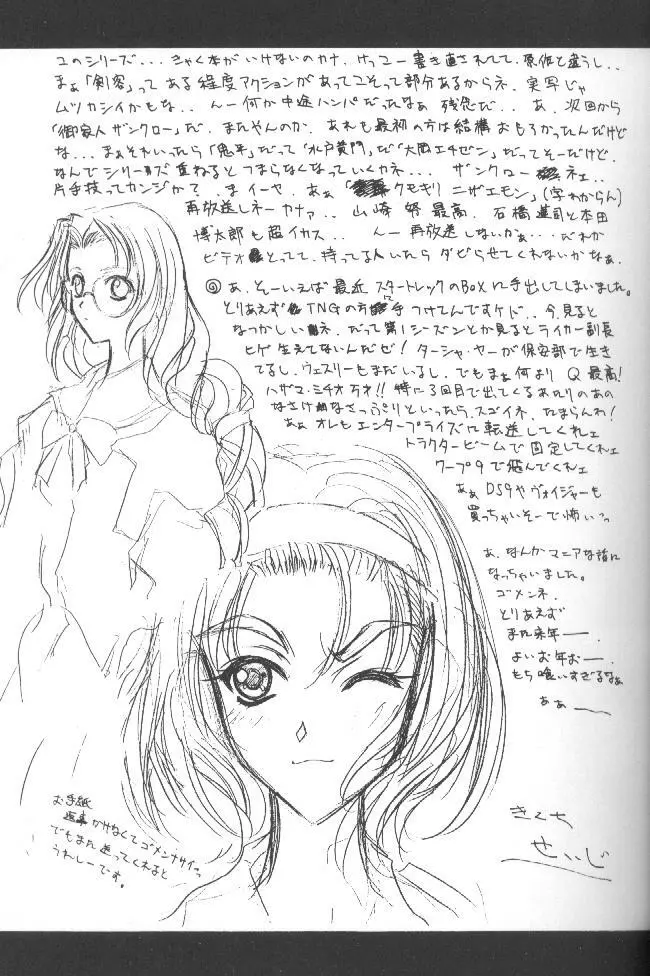 このシリーズ... きゃく本がいけないのカナ. けっこー書き直されてて. 原作と違うし..
まぁ「剣客」って ある程度アクションがあってこそって部分あるからネ. 実写じゃ
ムツカシイかもな.. んー何か中途ハンパだったなぁ 残念だ.. あ. 次回から
「御家人 ザンクロー」だ. またやんのか. あれも最初の方は結構 おもろかったんだけど
な... まぁそれいったら「鬼平」だって「水戸黄門」だ「大岡エチゼン」だってそーだけど.
なんでシリーズ重ねると つまらなくなっていくカネ... ザンクロー ネェ..
片手技ってカンジか?. ま イーヤ. あぁ「クモキリ ニザエモン」(字わからん)
再放送しネーカナァ.. 山崎努 最高. 石橋蓮司と本田
博太郎も超イカス.. んー 再放送しないかぁ... だれか
ビデオ とってて. 持ってる人いたら ダビらせてくれないかなぁ.
◎ あ. そーいえば 最近 スタートレックのBOXに手出してしまいました.
とりあえず TNGの方に手つけてんですケド.. 今見ると
なつかしいネ. だって第1シーズンとか見るとライカー副長
ヒゲ生えてないんだぜ! ターシャ・ヤーが保安部で生き
てるし. ウェスリーもまだいるし. でもまぁ何より Q最高!
ハザマ・ミチオ万才!! 特に3回目で出てくるあたりのあの
なさけなさっぷりといったら. スゴイネ. たまらんわ!
あぁ オレもエンタープライズに転送してくれェ
トラクタービームで固定してくれェ
ワープ9で飛んでくれェ
あぁ DS9やヴォイジャーも
買っちゃいそーで怖いっ
あ. なんかマニアな話に
なっちゃいました。
ゴメンネ.
とりあえず
また来年ーー.
よいお年おー.
もち喰いすぎるなぁ
あぁーー
お手紙
返事かけなくてゴメンナサイっ
でもまた送ってくれると
うれしーです。
きくち
せいじ